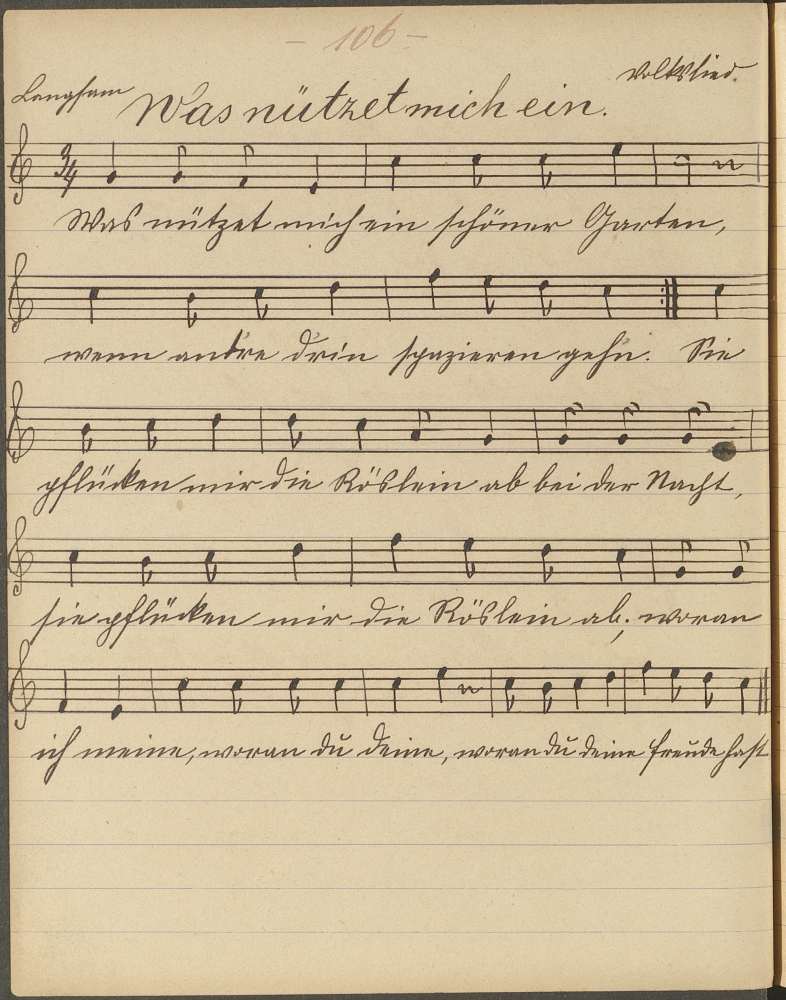 - 106 -
Langsam
Volkslied.
Was nützet mich ein.
3/4
Was nützet mich ein schöner Garten,
wenn andre drin spazieren gehn. Sie
pflücken mir die Röslein ab bei der Nacht,
sie pflücken mir die Röslein ab; woran
ich meine, woran du deine, woran du deine Freude hast